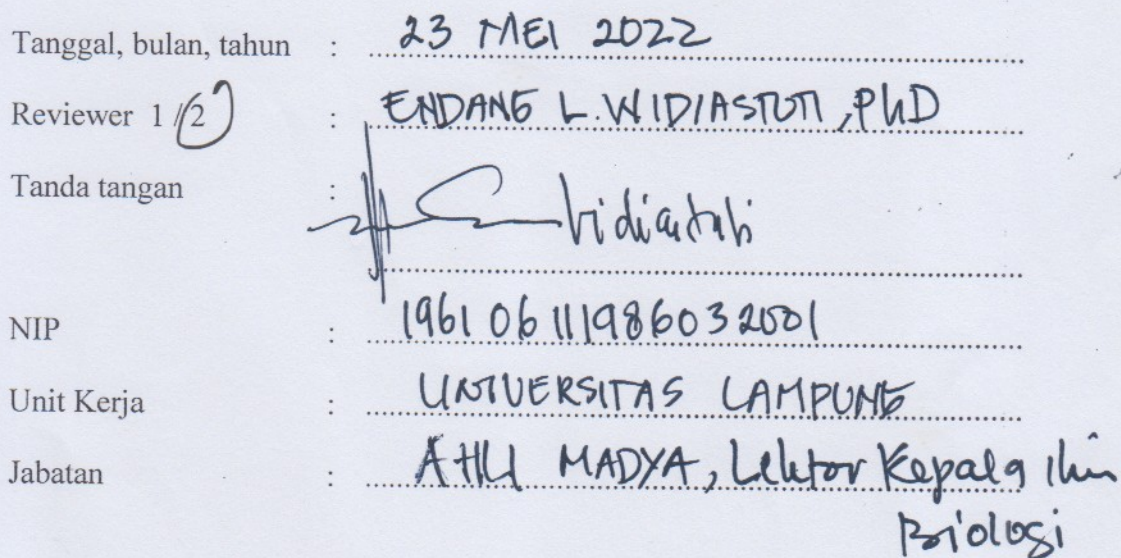 Tanggal, bulan, tahun : 23 MEI 2022
Reviewer 1/2 : ENDANG L. WIDIASTUTI, PhD
Tanda tangan : Widiastuti
NIP : 196106111986032001
Unit Kerja : UNIVERSITAS LAMPUNG
Jabatan : AHLI MADYA, Lektor Kepala Ilmu
Biologi